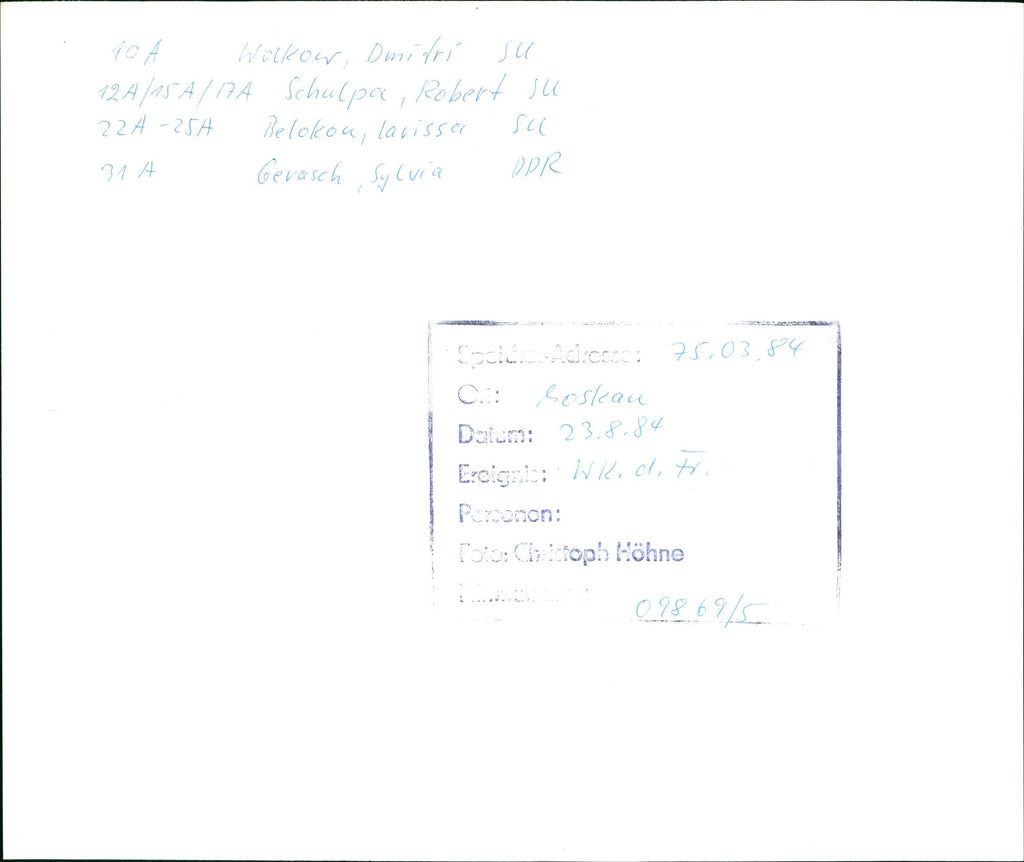 10A Wolkow, Dmitri SU
12A/15A/17A Schulpa, Robert SU
22A-25A Belokon, Larissa SU
31A Gerasch, Sylvia DDR
Speicher-Adresse: 75.03.84
Ort: Moskau
Datum: 23.8.84
Ereignis: WK. d. Fr.
Personen:
Foto: Christoph Höhne
09869/5